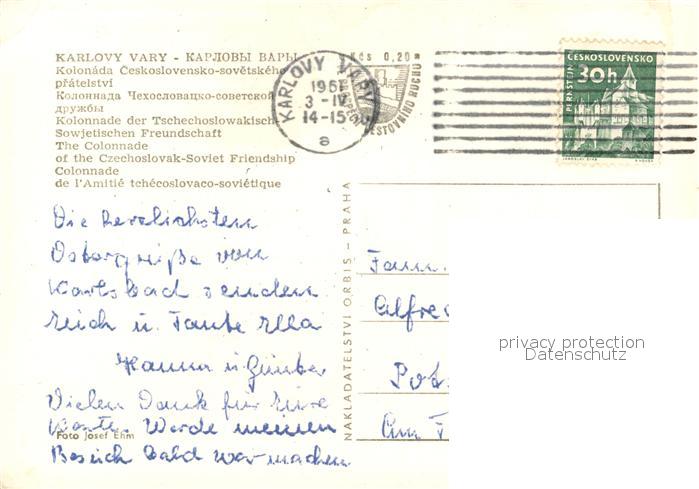 KARLOVY VARY - КАРЛОВЫ ВАРЫ
Kolonáda Československo-sovětského
přátelství
Колоннада Чехословацко-советской
дружбы
Kolonnade der Tschechoslowakisch-
Sowjetischen Freundschaft
The Colonnade
of the Czechoslovak-Soviet Friendship
Colonnade
de l'Amitié tchécoslovaco-soviétique
Kčs 0,20
KARLOVY VARY
1961
3 -IV
14-15
a
CESTOVNÍHO RUCHU
ČESKOSLOVENSKO
30h
PERNŠTEJN
Die herzlichsten
Ostergrüße von
Karlsbad senden
Euch u. Tante Ella
Hanna u. Günter
Vielen Dank für Eure
Karte. Werde meinen
Besuch bald war machen
Foto Josef Ehm
NAKLADATELSTVÍ ORBIS - PRAHA
Fam.
Alfre
Pot
Am
privacy protection
Datenschutz